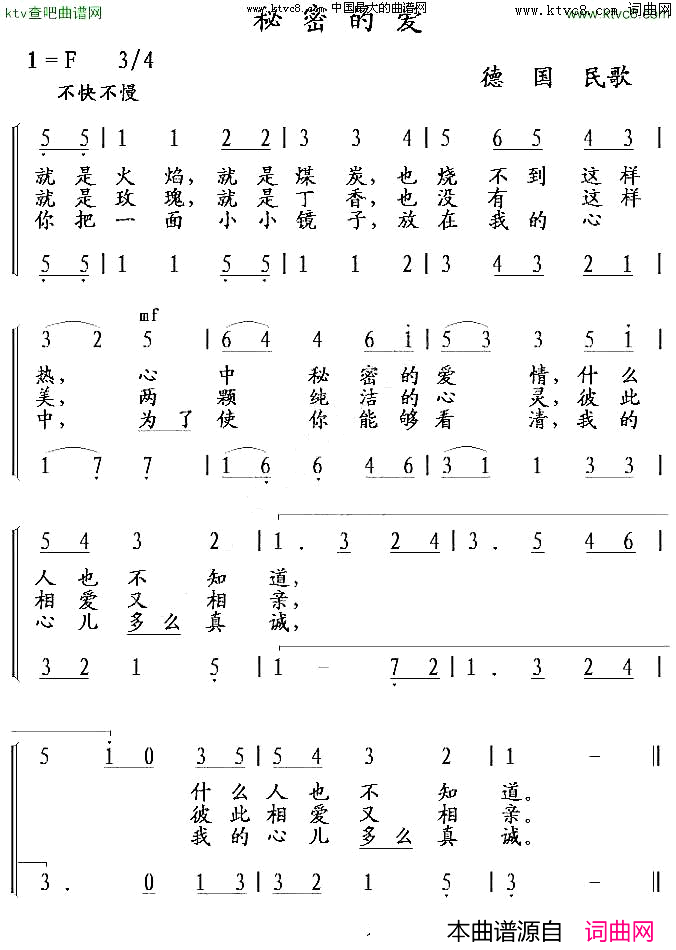 ktv查吧曲谱网 www.ktvc8.com 中国最大的曲谱网 www.ktvc8.com 词曲网
秘密的爱
1=F 3/4
德国民歌
不快不慢
5 5 | 1 1 2 2 | 3 3 4 | 5 6 5 4 3 |
就是火焰,就是煤炭,也烧不到这样
就是玫瑰,就是丁香,也没有这样
你把一面小小镜子,放在我的心
5 5 | 1 1 5 5 | 1 1 2 | 3 4 3 2 1 |
mf
3 2 5 | 6 4 4 6 i | 5 3 3 5 i |
热,心中秘密的爱情,什么
美,两颗纯洁的心灵,彼此
中,为了使你能够看清,我的
1 7 7 | 1 6 6 4 6 | 3 1 1 3 3 |
5 4 3 2 | 1. 3 2 4 | 3. 5 4 6 |
人也不知道,
相爱又相亲,
心儿多么真诚,
3 2 1 5 | 1 - 7 2 | 1. 3 2 4 |
5 i 0 3 5 | 5 4 3 2 | 1 - ‖
什么人也不知道。
彼此相爱又相亲。
我的心儿多么真诚。
3. 0 1 3 | 3 2 1 5 | 3 - ‖
本曲谱源自 词曲网